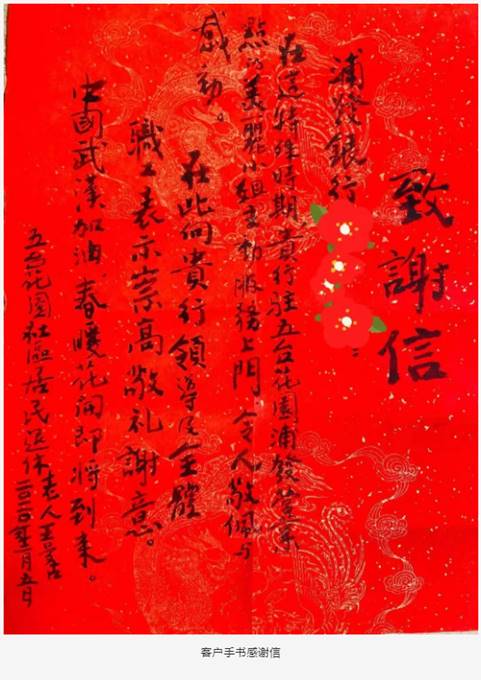 致謝信
浦發銀行
在這特殊時期,貴行駐五台花園浦發營業
點的美麗小姐主動服務上門,令人敬佩与
感动。
在此向貴行領導及全體
職工表示崇高敬礼謝意。
中國武漢加油,春暖花開即將到来。
五台花園社區居民退休老人王
二〇二〇年二月五日
客户手书感谢信